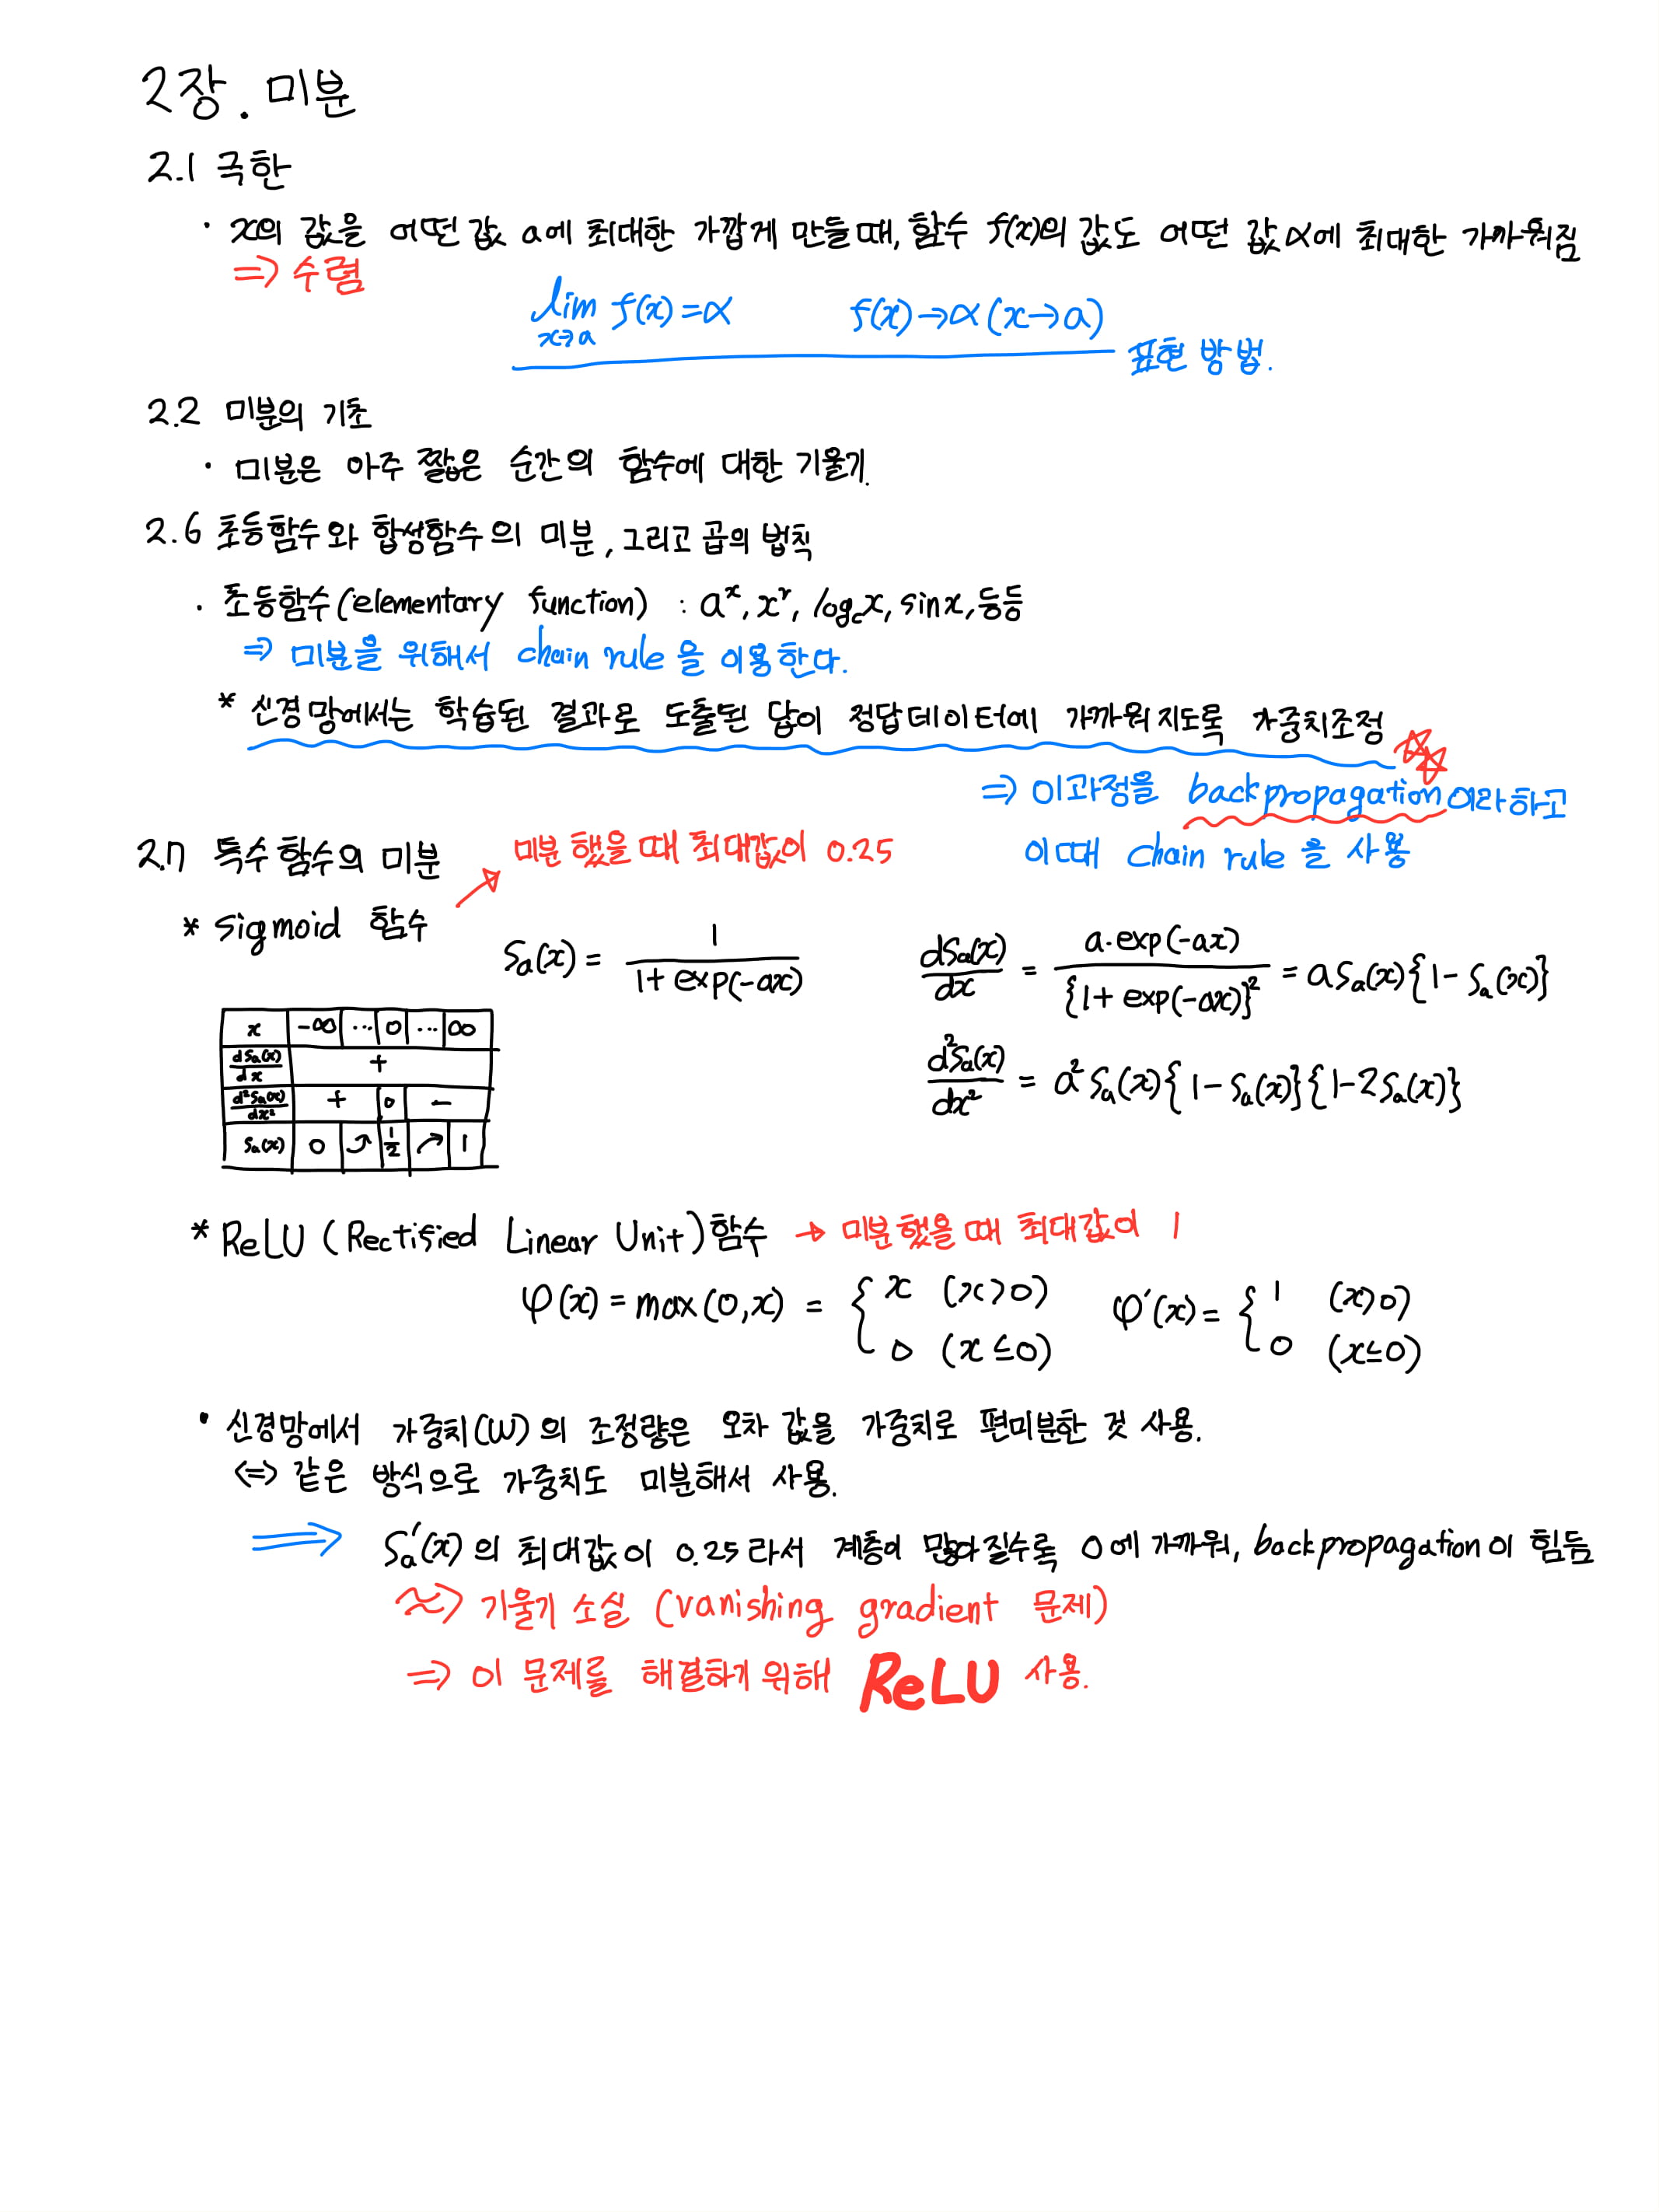 2장. 미분
2.1 극한
· x의 값을 어떤 값 a에 최대한 가깝게 만들때, 함수 f(x)의 값도 어떤 값 α에 최대한 가까워짐
⇒ 수렴
lim f(x)=α f(x)→α (x→a)
x→a
표현 방법.
2.2 미분의 기초
· 미분은 아주 짧은 순간의 함수에 대한 기울기.
2.6 초등함수와 합성함수의 미분, 그리고 곱의 법칙
· 초등함수(elementary function) : aˣ, xʳ, log_c x, sin x, 등등
⇒ 미분을 위해서 chain rule을 이용한다.
* 신경망에서는 학습된 결과로 도출된 답이 정답데이터에 가까워지도록 가중치조정
⇒ 이과정을 backpropagation이라하고
이때 chain rule을 사용
2.7 특수 함수의 미분
미분 했을때 최대값이 0.25
* Sigmoid 함수
Sₐ(x) = 1 / (1+exp(-ax)) dSₐ(x)/dx = a·exp(-ax) / {1+exp(-ax)}² = aSₐ(x){1-Sₐ(x)}
d²Sₐ(x)/dx² = a²Sₐ(x){1-Sₐ(x)}{1-2Sₐ(x)}
x -∞ ··· 0 ··· ∞
dSₐ(x)/dx +
d²Sₐ(x)/dx² + 0 -
Sₐ(x) 0 ⤴ 1/2 ↗ 1
* ReLU (Rectified Linear Unit)함수 → 미분했을때 최대값이 1
φ(x) = max(0,x) = { x (x>0) φ'(x) = { 1 (x>0)
0 (x≤0) 0 (x≤0)
· 신경망에서 가중치(W)의 조정량은 오차 값을 가중치로 편미분한 것 사용.
<=> 같은 방식으로 가중치도 미분해서 사용.
⇒ Sₐ'(x)의 최대값이 0.25라서 계층이 많아질수록 0에 가까워, backpropagation이 힘듦
~> 기울기 소실 (vanishing gradient 문제)
⇒ 이 문제를 해결하기위해 ReLU 사용.